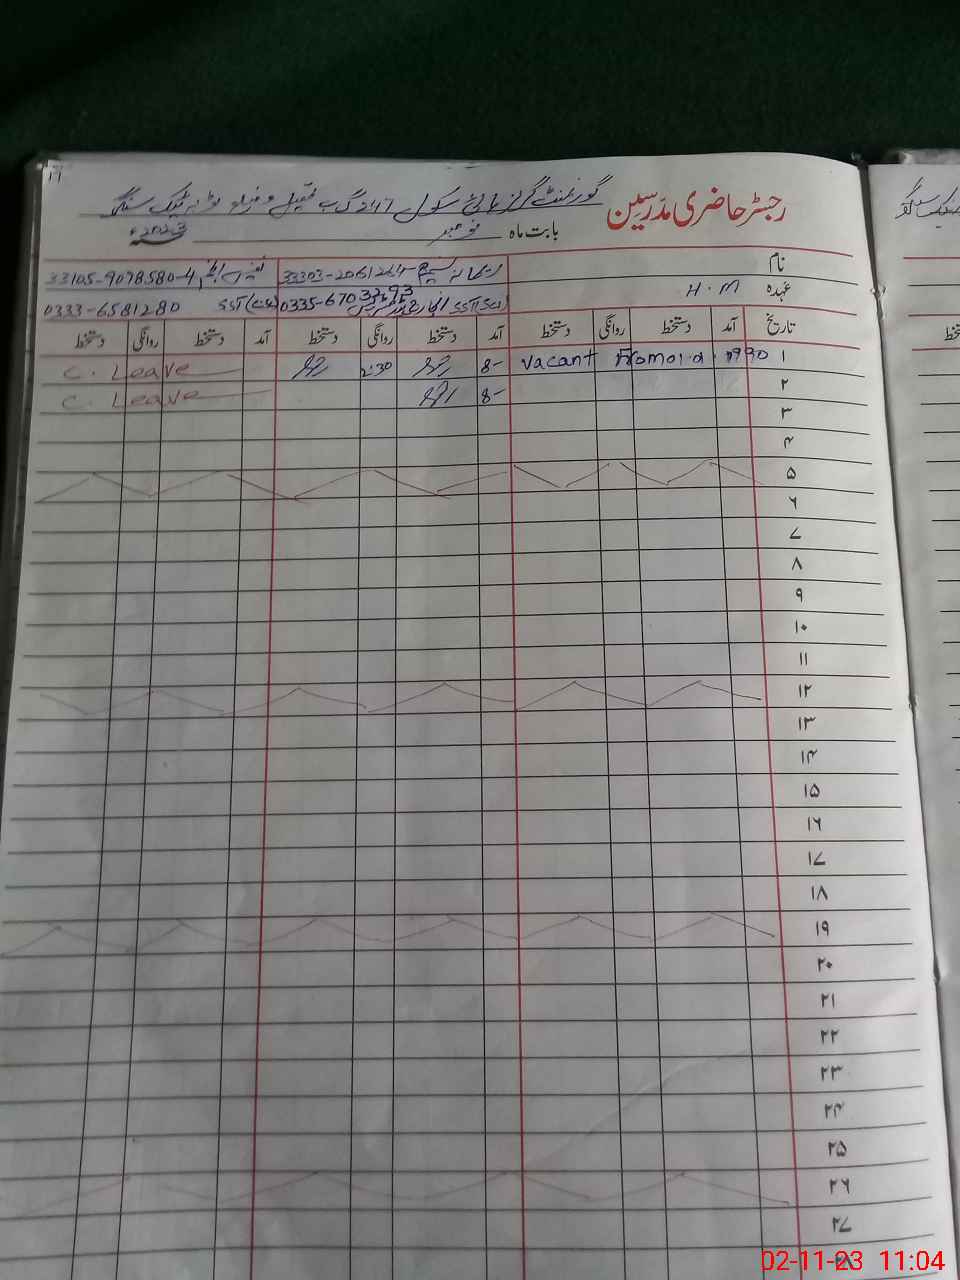 ۱۷
رجسٹر حاضری مدرسین گورنمنٹ گرلز ہائی سکول 247 گ ب تحصیل و ضلع ٹوبہ ٹیک سنگھ
بابت ماہ نومبر 2023ء
نام 33303-2061264- 33105-9078580-4
عہدہ H.M SST(Sci) 0335-6703293 SST 0333-6581280
تاریخ آمد دستخط روانگی دستخط آمد دستخط روانگی دستخط آمد دستخط روانگی دستخط
۱ Vacant 1990 8- 2:30 C. Leave
۲ 8- C. Leave
۳
۴
۵
۶
۷
۸
۹
۱۰
۱۱
۱۲
۱۳
۱۴
۱۵
۱۶
۱۷
۱۸
۱۹
۲۰
۲۱
۲۲
۲۳
۲۴
۲۵
۲۶
۲۷
۲۸
02-11-23 11:04